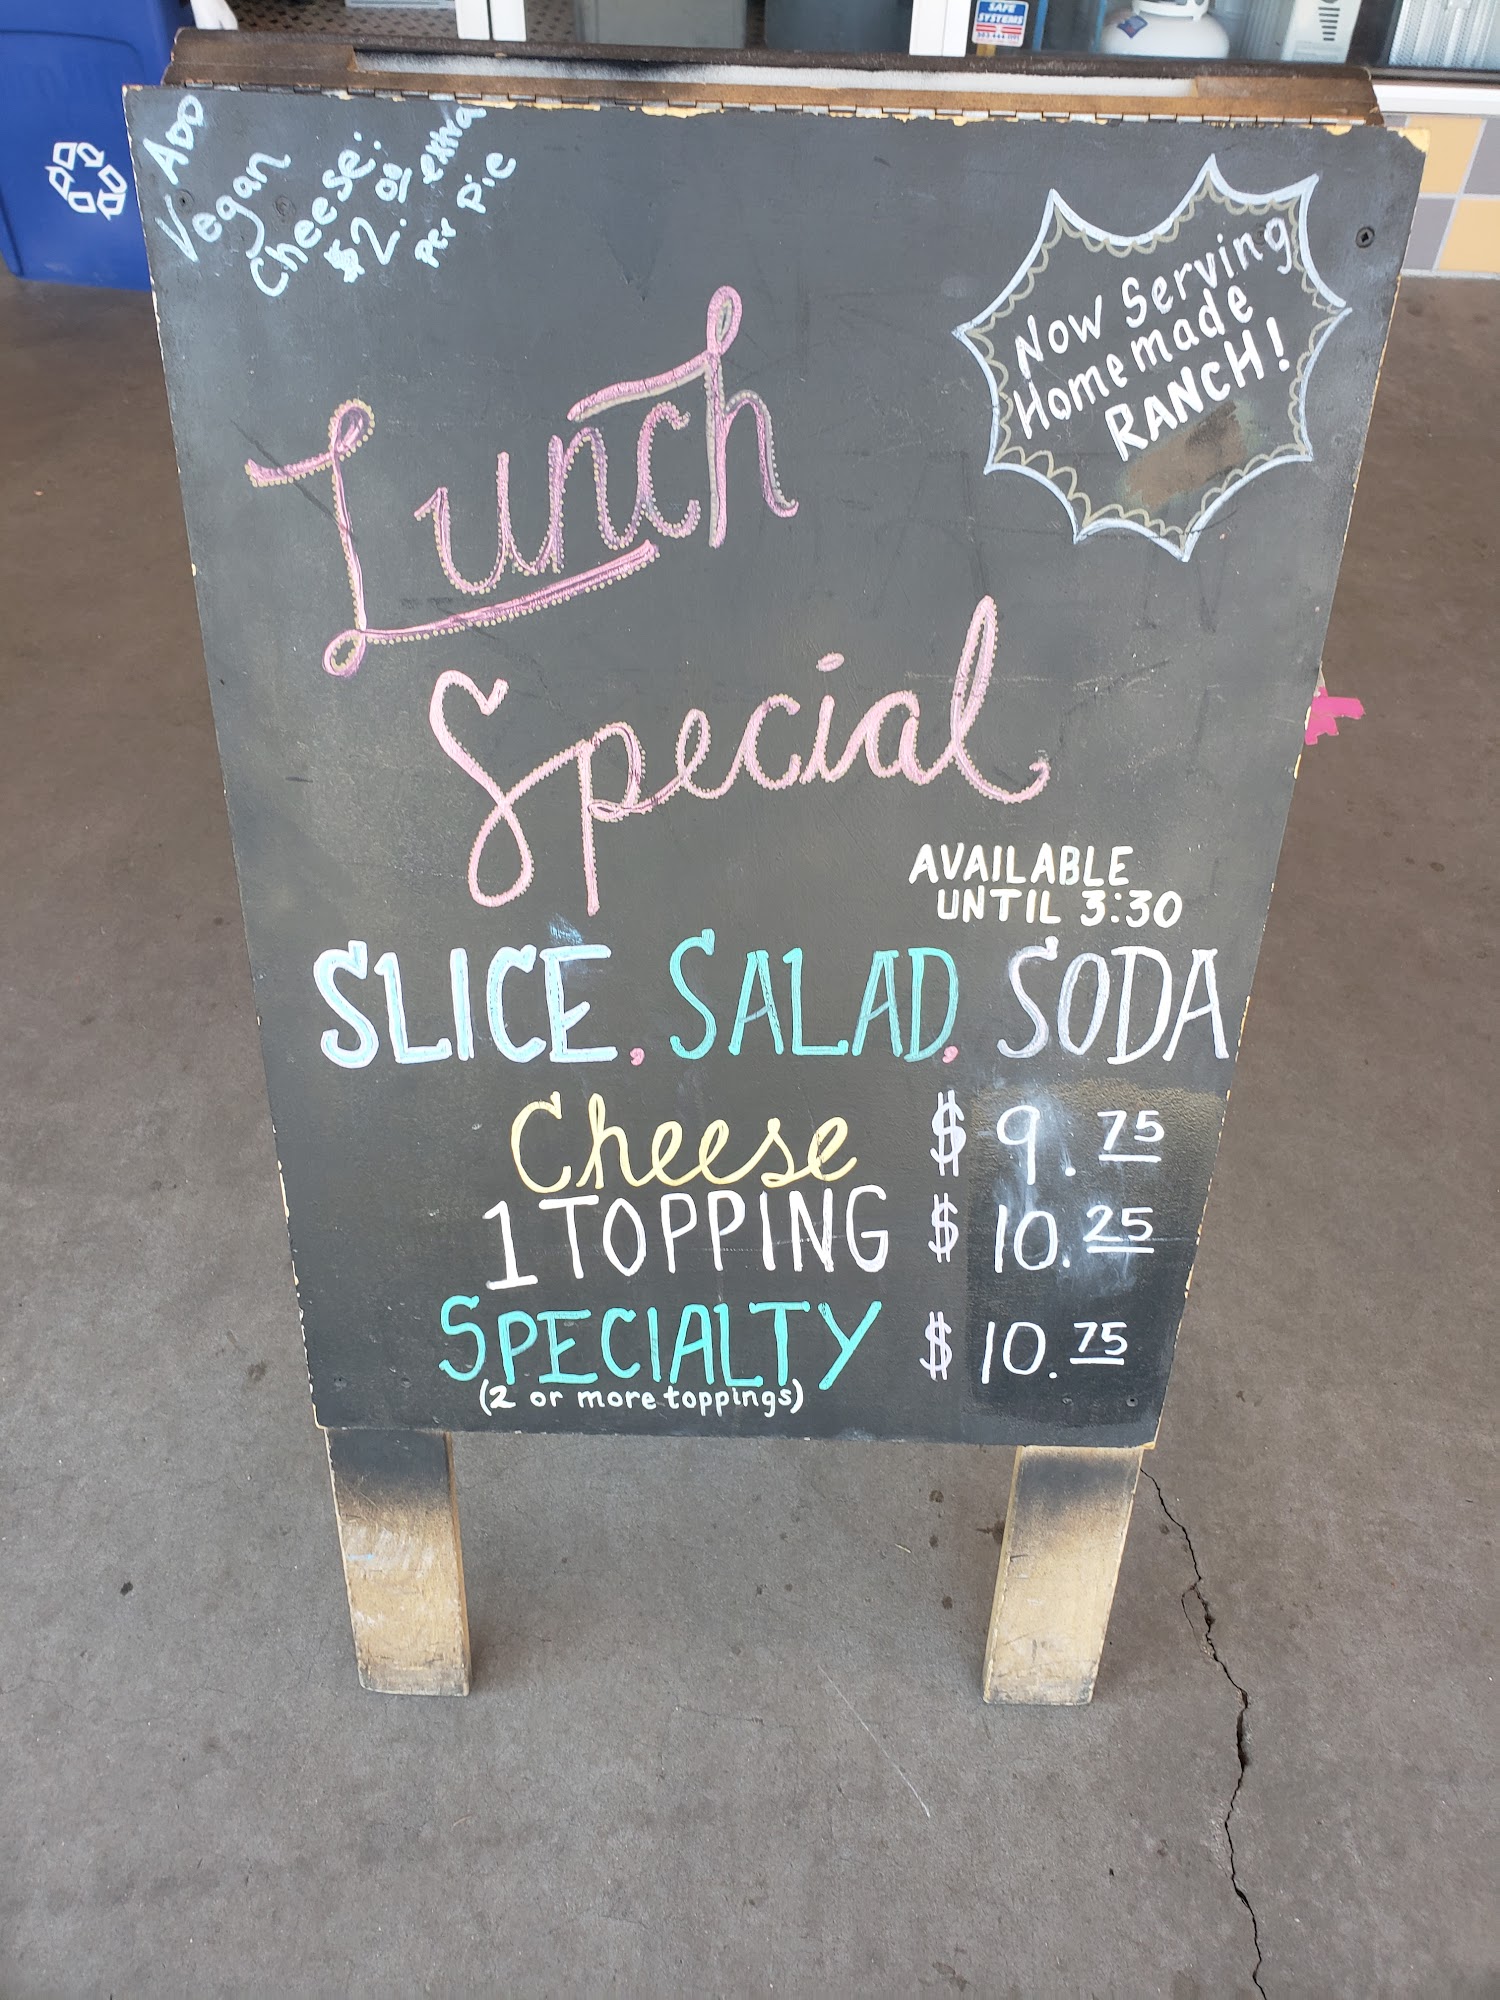 ADD
Vegan
Cheese:
$2.00 extra
per pie
Now Serving
Homemade
RANCH!
Lunch
Special
AVAILABLE
UNTIL 3:30
SLICE, SALAD, SODA
Cheese $ 9.75
1 TOPPING $ 10.25
SPECIALTY $ 10.75
(2 or more toppings)
SAFE
SYSTEMS